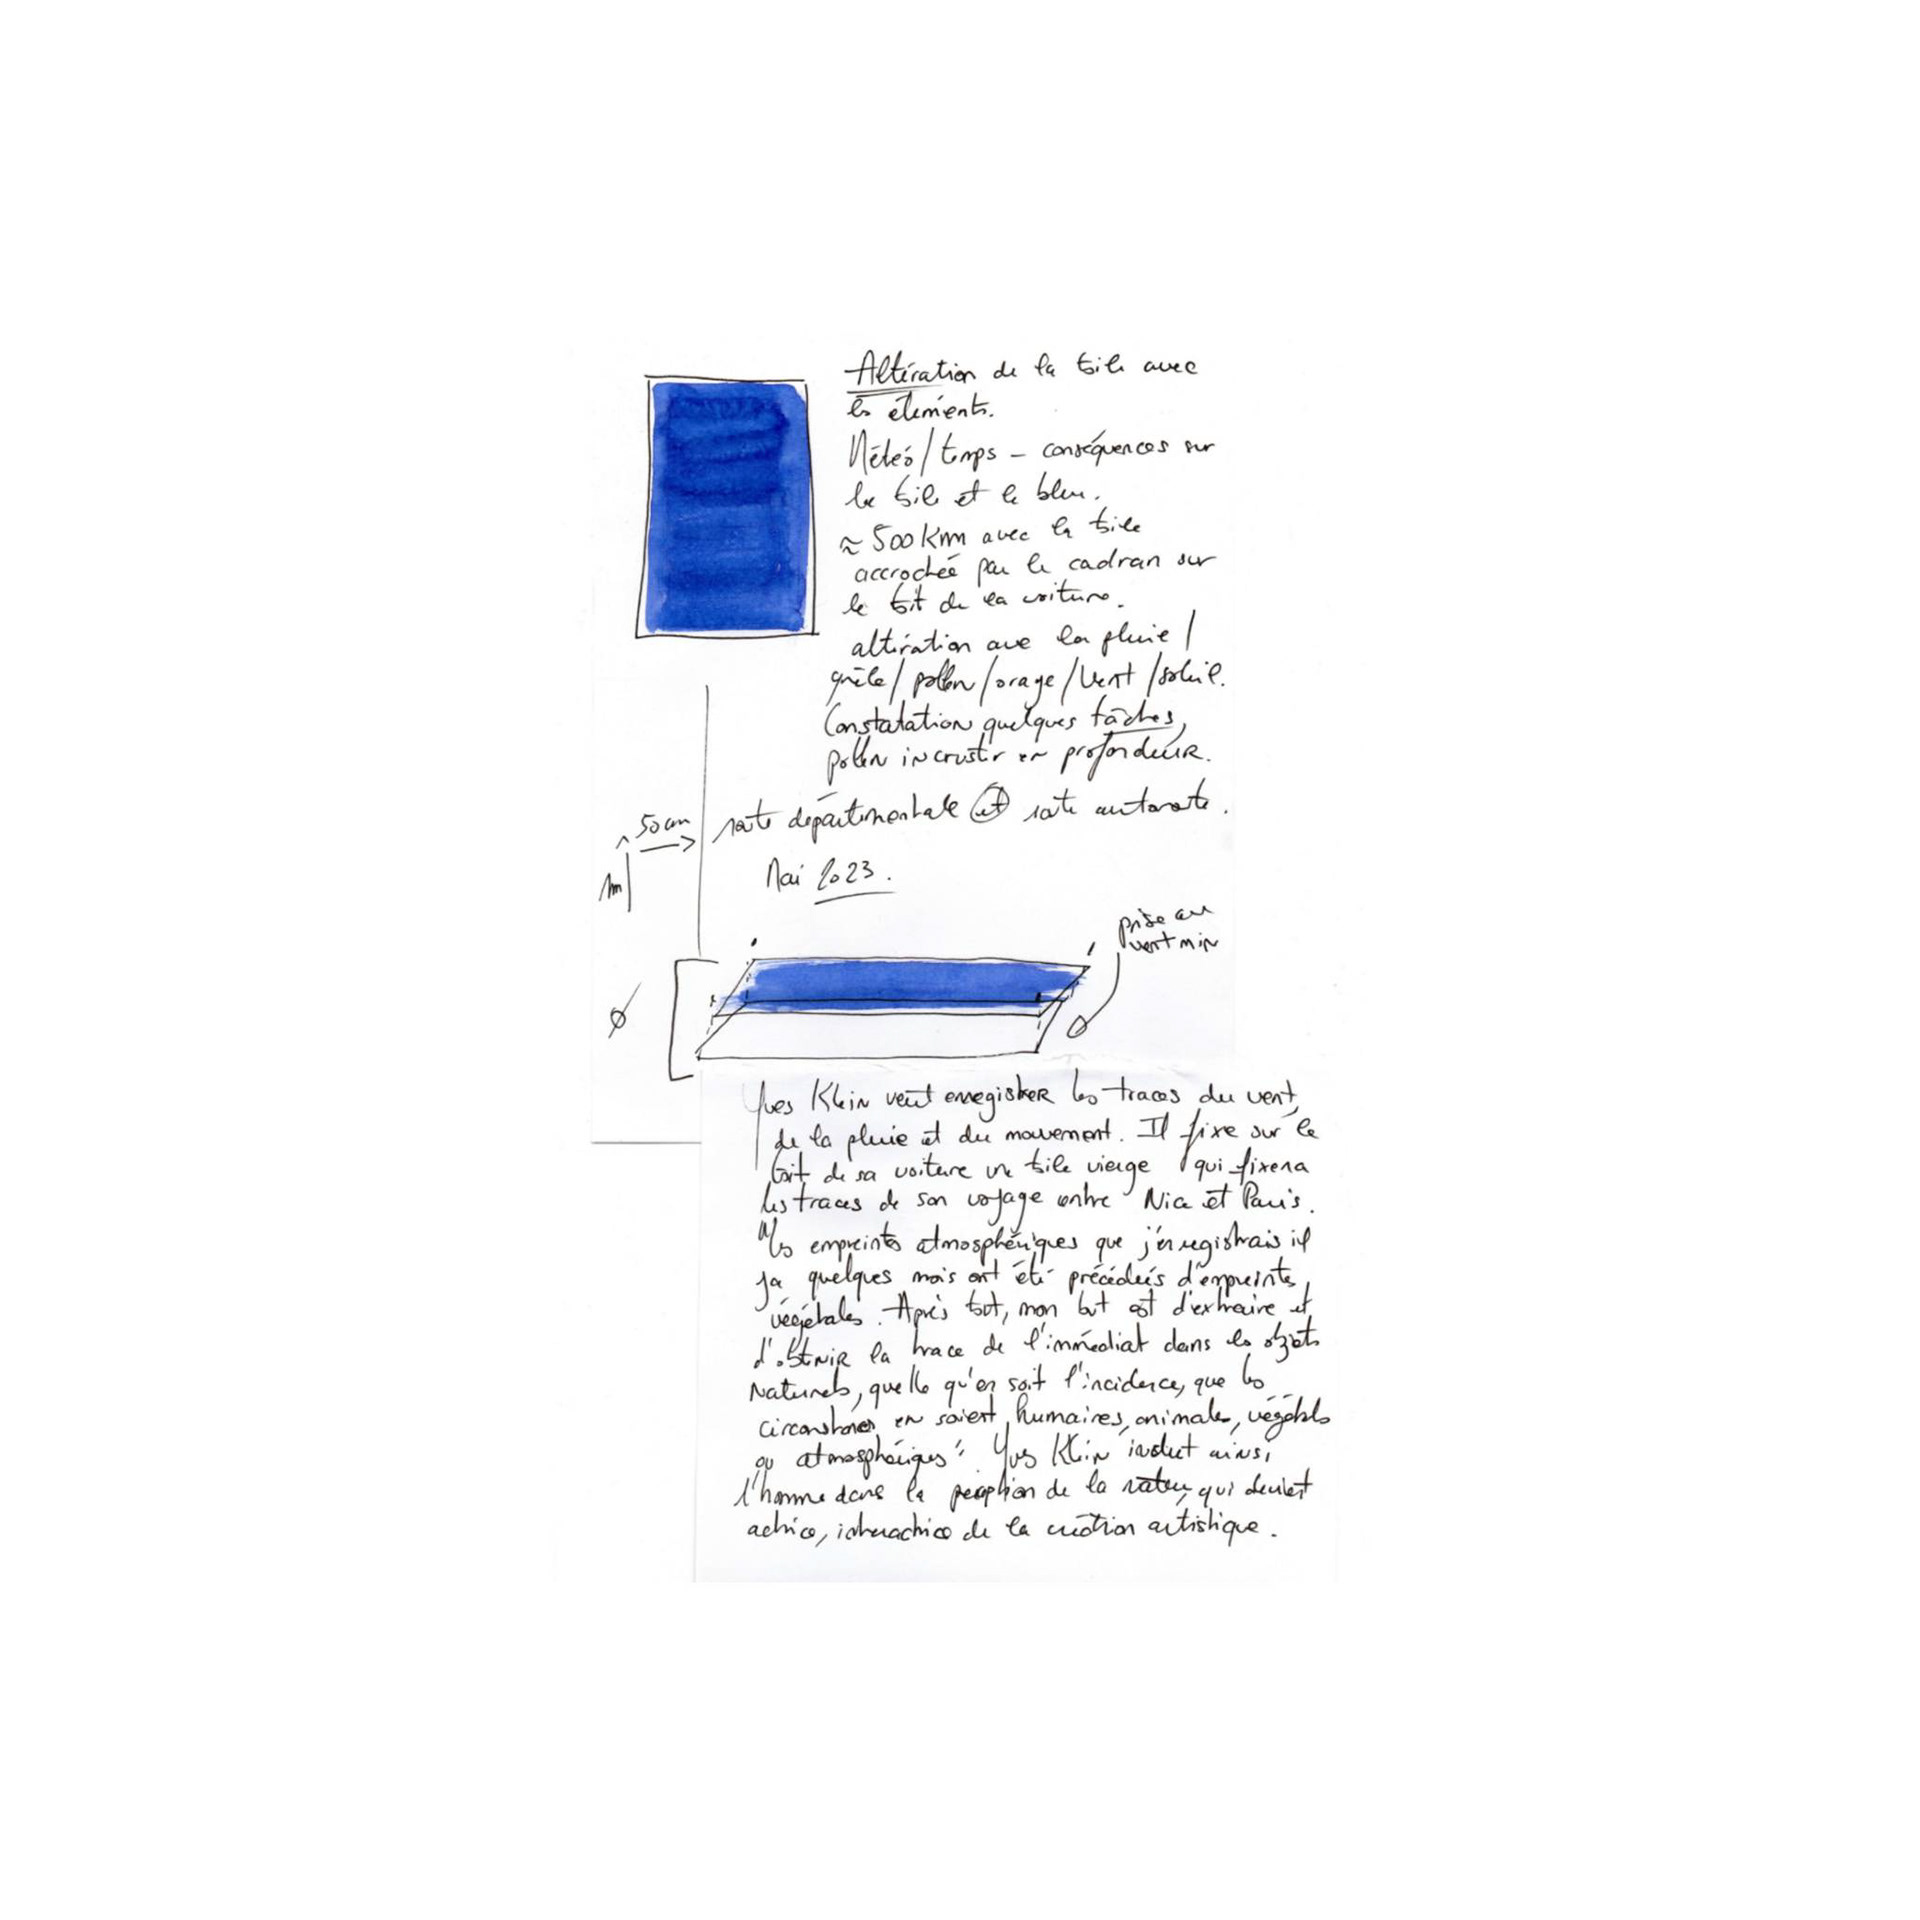 Altération de la toile avec
les éléments.
Météo/temps – conséquences sur
la toile et le bleu.
≈ 500 Km avec la toile
accrochée par le cadran sur
le toit de la voiture.
altération avec la pluie /
grêle / pollen / orage / Vent / soleil.
Constatation quelques tâches,
pollen incruster en profondeur.
50 cm
route départementale et route autoroute.
1m
Mai 2023.
prise au
vent min
Ø
Yves Klein veut enregistrer les traces du vent,
de la pluie et du mouvement. Il fixe sur le
toit de sa voiture une toile vierge qui fixera
les traces de son voyage entre Nice et Paris.
"Les empreintes atmosphériques que j'enregistrais il
ya quelques mois ont été précédées d'empreintes
végétales. Après tout, mon but est d'extraire et
d'obtenir la trace de l'immédiat dans les objets
Naturels, quelle qu'en soit l'incidence, que les
circonstances en soient humaines, animales, végétales
ou atmosphériques". Yves Klein inclut ainsi
l'homme dans la perception de la nature, qui devient
actrice, interactrice de la création artistique.